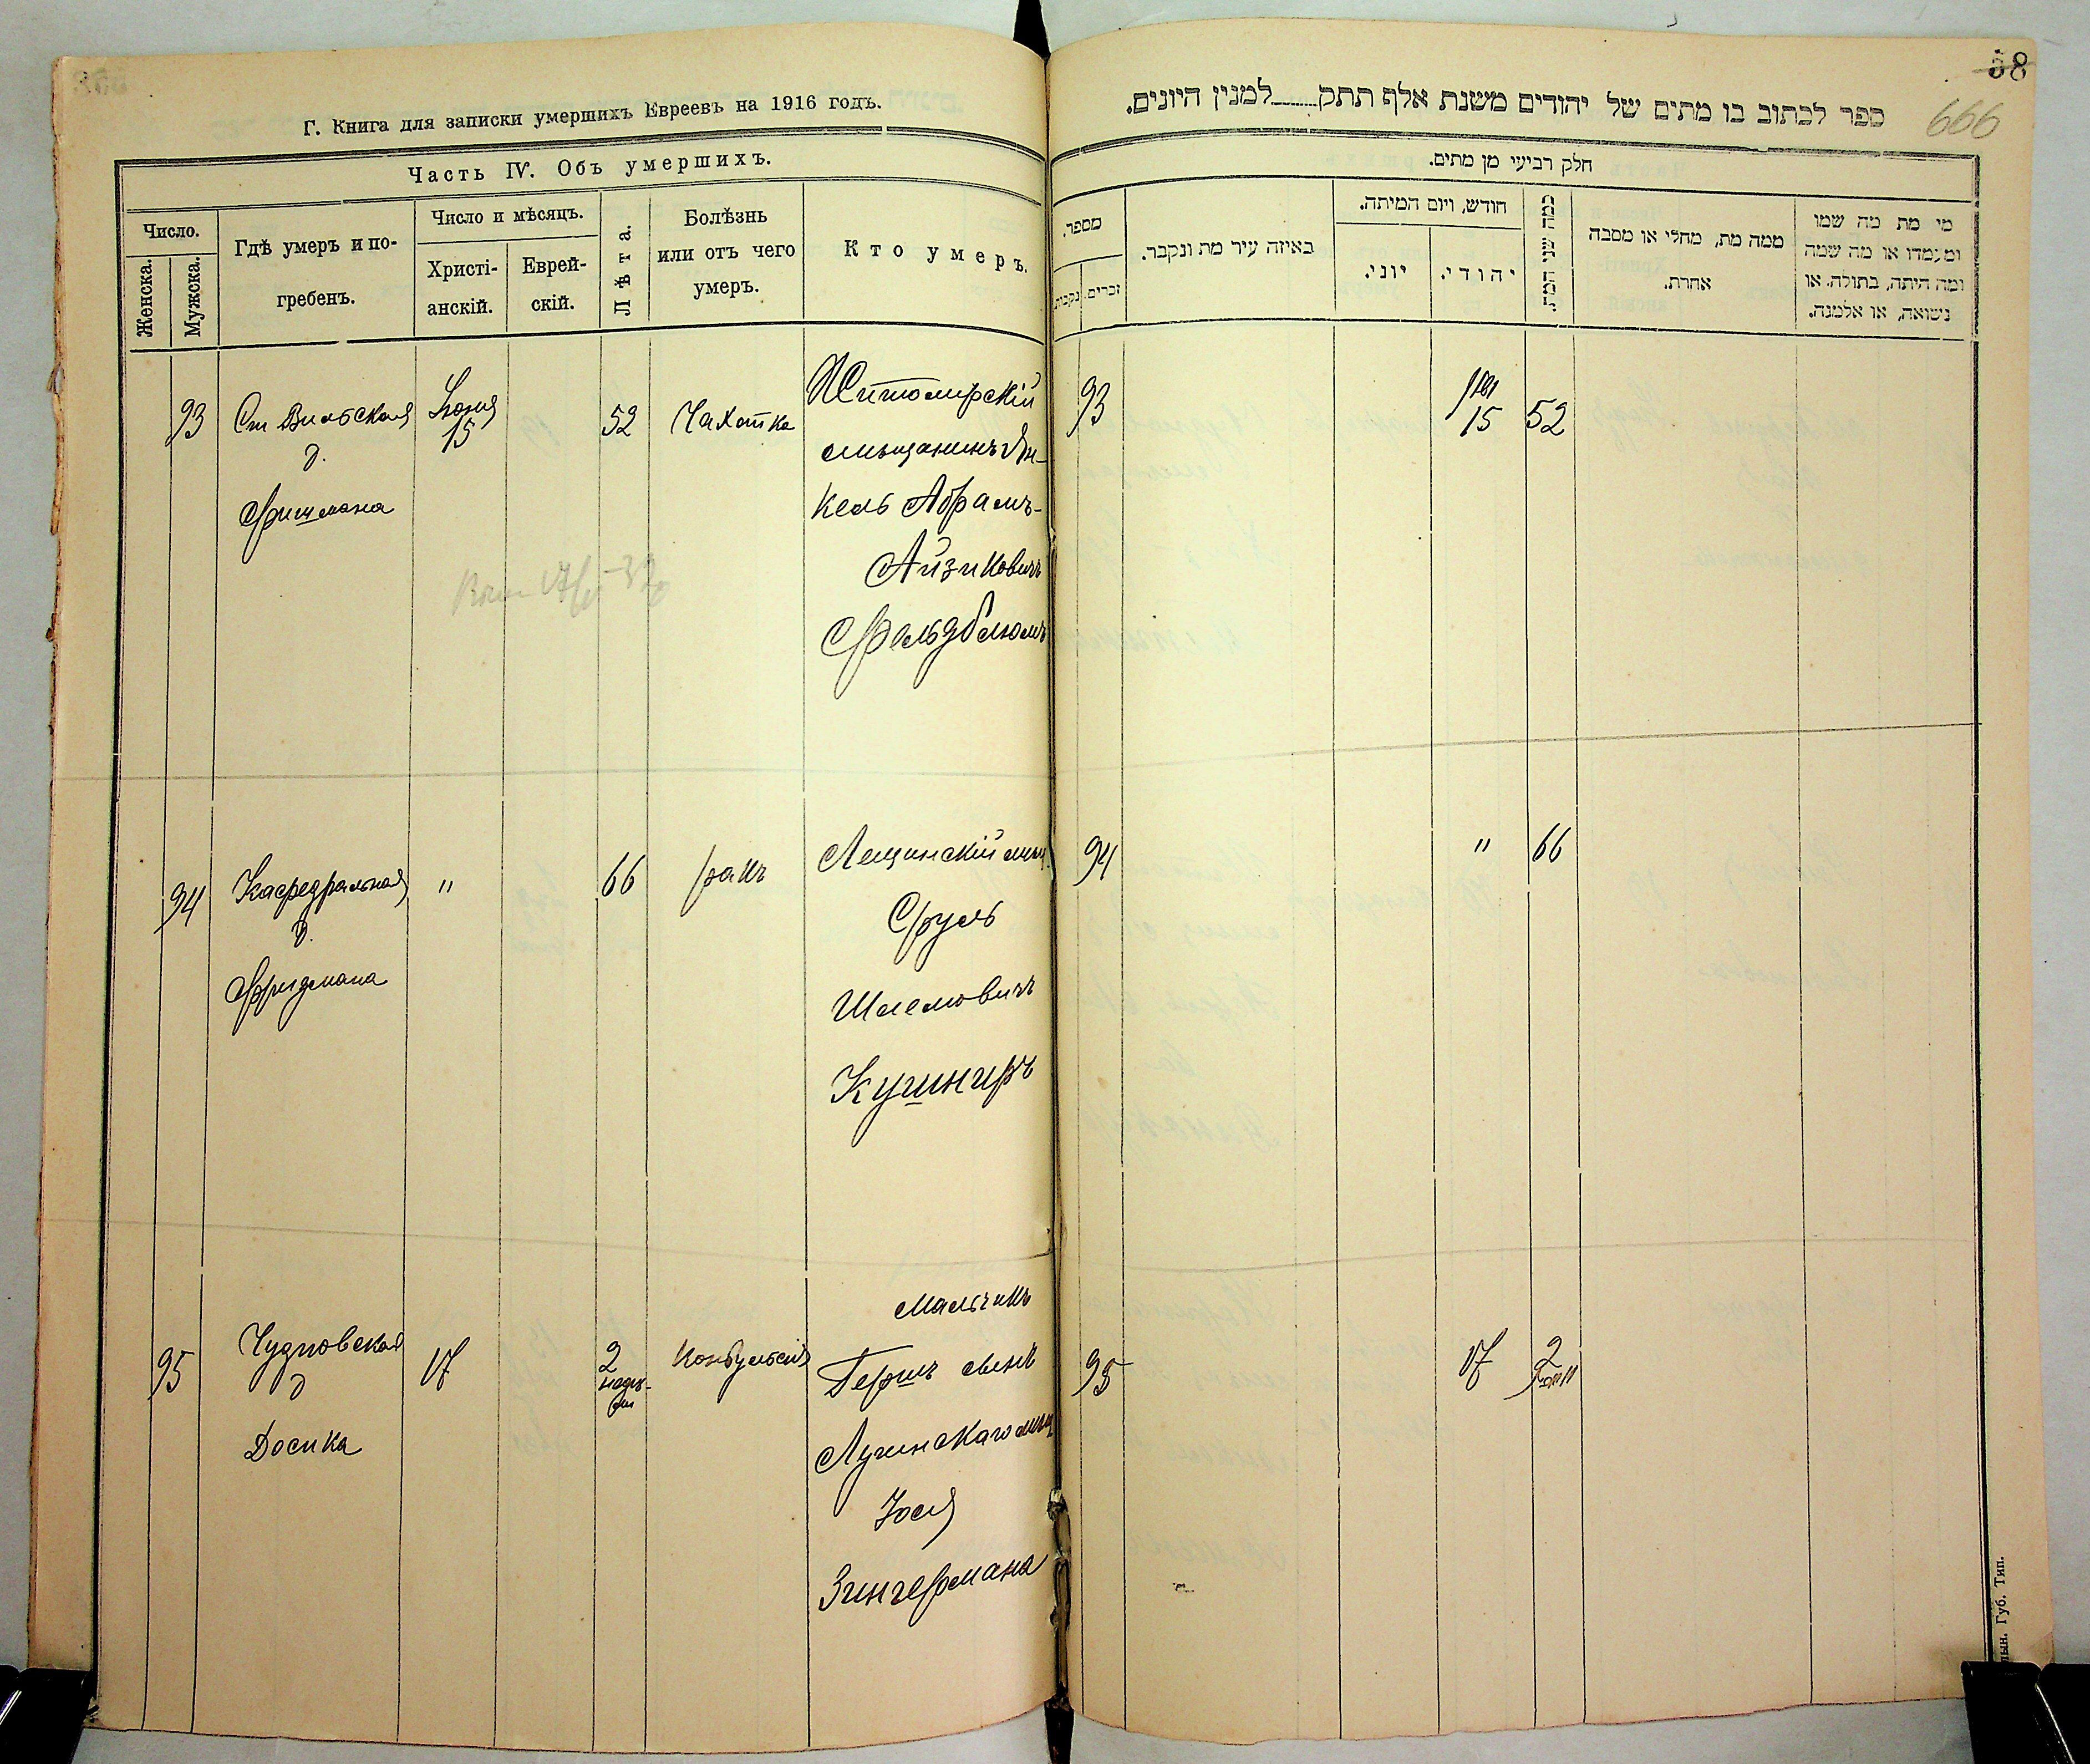 Г. Книга для записки умершихъ Евреевъ на 1916 годъ.
Часть IV. Объ умершихъ.
Число.
Женска.
Мужска.
Гдѣ умеръ и по-
гребенъ.
Число и мѣсяцъ.
Христі-
анскій.
Еврей-
скій.
Лѣта.
Болѣзнь
или отъ чего
умеръ.
Кто умеръ.
93
Ст Вильская
д.
Фишмана
Іюня
15
52
Чахотка
Житомирскій
мѣщанинъ Ян-
кель Абрамъ-
Айзиковичъ
Фельдблюмъ
94
Кафедральная
д.
Фридмана
"
66
ракъ
Лещинскій мѣщ
Сруль
Шлемовичъ
Кушниръ
95
Чудновская
д
Досика
17
2
недѣ-
ли
Конвульсія
мальчикъ
Гершъ сынъ
Лугинскаго мѣщ
Йося
Зингермана
58
666
ספר לכתוב בו מתים של יהודים משנת אלף תתק למנין היונים.
חלק רביעי מן מתים.
מספר.
זכרים.
נקבות
באיזה עיר מת ונקבר.
חודש, ויום המיתה.
יוני.
יהודי.
כמה שני המת.
ממה מת, מחלי או מסבה
אחרת.
מי מת מה שמו
ומעמדו או מה שמה
ומה היתה, בתולה, או
נשואה, או אלמנה.
93
15
52
94
"
66
95
17
2
Губ. Тип.